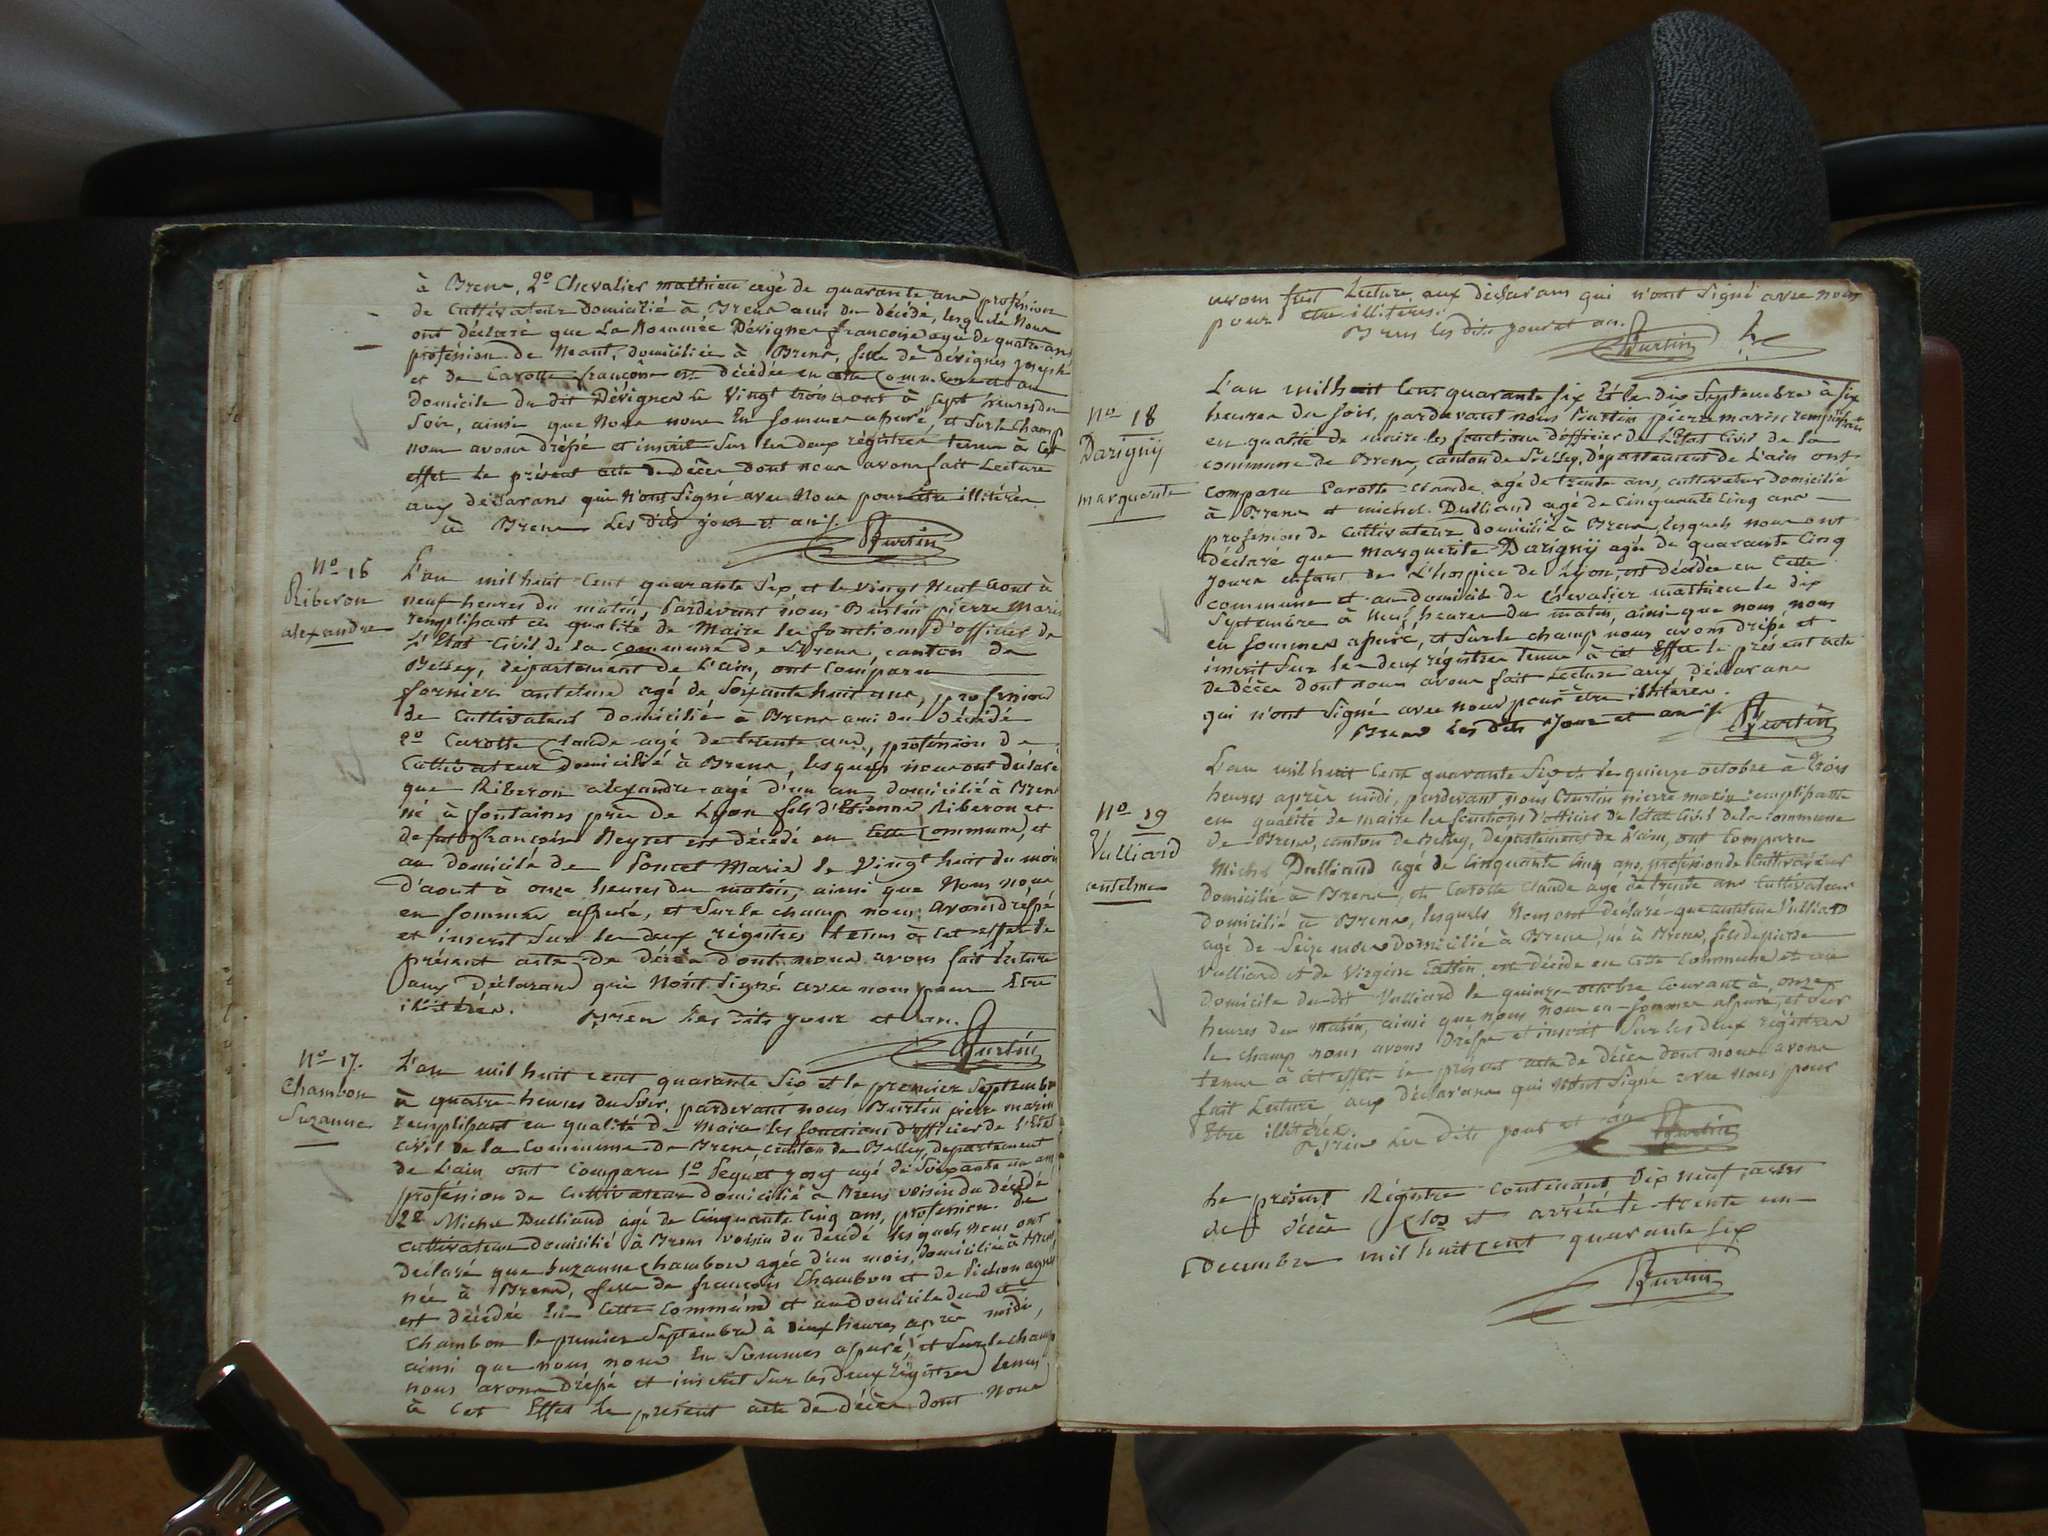 à Brens, 2º Chevalier mathieu agé de quarante ans profession
de Cultivateur Domicilié à Brens ami du décédé, lesquels Nous
ont déclaré que La Nommée Dévignes françoise agée de quatre ans
profession de Neant, domiciliée à Brens, fille de dévignes joseph
et de Carotte françoise est décédée en cette Commune et au
Domicile du dit Dévignes le Vingt trois aout à sept heures du
Soir, ainsi que Nous nous En sommes assuré, et Sur le champ
nous avons dréssé et inscrit Sur les deux régistres tenus à Cet
effet le présent acte de Décès dont nous avons fait Lecture
aux déclarans qui N'ont Signé avec Nous pour être illitérés
à Brens Les Dits jour et an.
Burtin
Nº 16
Riberon
alexandre
L'an mil huit Cent quarante Six, et le vingt Neuf Aout à
neuf heures du matin, Pardevant nous Burtin pierre Marin
remplissant en qualité de Maire les fonctions d'officier de
L'Etat Civil de la Commune de Brens, canton de
Belley, département de L'ain, ont Comparu
fornier antelme agé de Soixante huit ans, profession
de Cultivateur Domicilié à Brens ami du Décédé
2º Carotte Claude agé de trente ans, profession de
Cultivateur Domicilié à Brens, lesquels nous ont déclaré
que Riberon alexandre agé d'un an domicilié à Brens
né à fontaines près de Lyon fils d'Etienne Riberon et
de françoise Reyret est décédé en Cette Commune, et
au Domicile de Poncet Marie le Vingt huit du mois
d'aout à onze heures du matin, ainsi que Nous nous
en sommes assuré, et Sur le champ nous avons dressé
et inscrit Sur les deux régistres tenus à Cet effet le
présent acte de décès dont nous avons fait lecture
aux Déclarans qui N'ont Signé avec nous pour Etre
illitérés.
Brens Les Dits jour et an.
Burtin
Nº 17.
Chambon
Suzanne
L'an mil huit cent quarante Six et le premier Septembre
à quatre heures du Soir, pardevant nous Burtin pierre marin
remplissant en qualité de Maire les fonctions d'officier de l'Etat
civil de la Commune de Brens canton de Belley, departement
de Lain, ont Comparu 1º agé de Soixante un ans
profession de Cultivateur Domicilié à Brens voisin du Décédé
2º Michel Dulliand agé de Cinquante Cinq ans, profession de
cultivateur domicilié à Brens voisin du décédé lesquels nous ont
déclaré que Suzanne Chambon agée d'un mois, domiciliée à Brens,
née à Brens, fille de françois Chambon et de Pichon agnès
est décédée En Cette Commune et au Domicile du dit
Chambon le premier Septembre à deux heures après midi,
ainsi que nous nous En Sommes assuré, et Sur le champ
nous avons dréssé et inscrit Sur les deux régistres tenus
à Cet Effet le présent acte de Décès dont Nous
avons fait Lecture aux déclarans qui n'ont Signé avec nous
pour être illitérés.
Brens les dits jour et an.
Burtin
Nº 18
Darigniÿ
marguerite
L'an mil huit Cent quarante six Et le dix Septembre à six
heures du soir, pardevant nous Burtin pierre marin remplissant
en qualité de maire les fonctions d'officier de L'Etat Civil de la
commune de Brens, canton de Belley, Département de L'ain ont
Comparu Carotte Claude agé de trente ans, cultivateur domicilié
à Brens et michel Dulliand agé de Cinquante Cinq ans
profession de Cultivateur domicilié à Brens, lesquels nous ont
déclaré que Marguerite Darigniÿ agée de quarante Cinq
jours enfant de L'hospice de Lyon, est décédée en Cette
commune et au domicile de Chevalier mathieu le dix
Septembre à Neuf heures du matin, ainsi que nous nous
en sommes assuré, et Sur le champ nous avons dréssé et
inscrit Sur les deux régistres tenus à Cet Effet le présent acte
de décès dont nous avons fait Lecture aux déclarans
qui n'ont Signé avec nous pour être illitérés.
Brens Les dits Jour et an.
Burtin
Nº 19
Vulliard
antelme
L'an mil huit Cent quarante Six et le quinze octobre à trois
heures après midi, pardevant nous Burtin pierre marin remplissant
en qualité de maire les fonctions d'officier de l'état civil de la commune
de Brens, canton de Belley, département de L'ain, ont Comparu
Michel Dulliand agé de Cinquante Cinq ans, profession de Cultivateur
domicilié à Brens, et Carotte Claude agé de trente ans Cultivateur
domicilié à Brens, lesquels Nous ont déclaré que antelme Vulliard
agé de Seize mois Domicilié à Brens, né à Brens, fils de pierre
Vulliard et de Virginie est décédé en Cette Commune et au
domicile du dit Vulliard le quinze octobre Courant à onze
heures du matin, ainsi que nous nous en sommes assuré, et Sur
le champ nous avons Dréssé et inscrit Sur les deux régistres
tenus à Cet effet le présent acte de décès dont nous avons
fait Lecture aux déclarans qui N'ont Signé avec nous pour
Etre illitérés.
Brens Les dits jour et an
Burtin
Le présent Régistre contenant Dix neuf actes
de décès Clos et arrété le trente un
Decembre mil huit cent quarante Six
Burtin